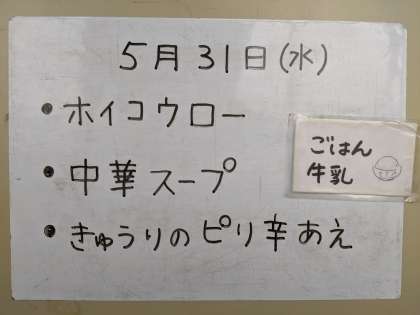 5月31日(水)
• ホイコウロー
• 中華スープ
• きゅうりのピリ辛あえ
ごはん
牛乳